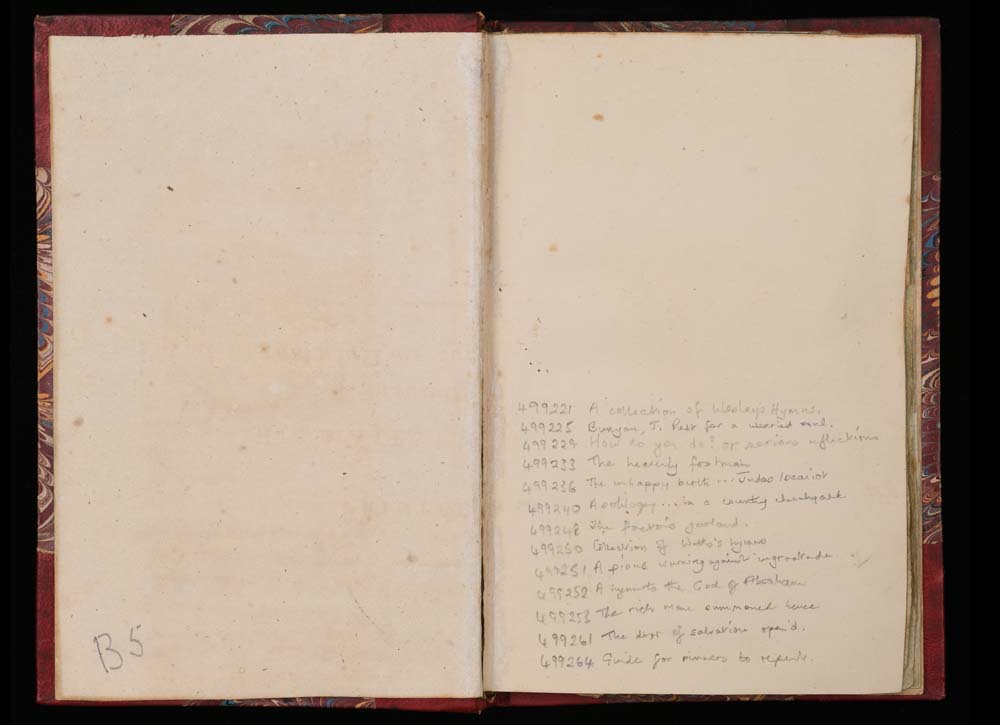 B5
499221 A collection of Wesleys Hymns.
499225 Bunyan, J. Rest for a wearied soul.
499229 How do you do? or serious reflections
499233 The heavenly footman
499236 The unhappy birth ... Judas Iscariot
499240 A soliloquy ... in a country churchyard.
499248 The factor's garland.
499250 Collection of Watts's hymns
499251 A pious warning against ingratitude
499252 A hymn to the God of Abraham
499253 The rich man summoned hence
499261 The door of salvation open'd.
499264 Guide for sinners to repent.